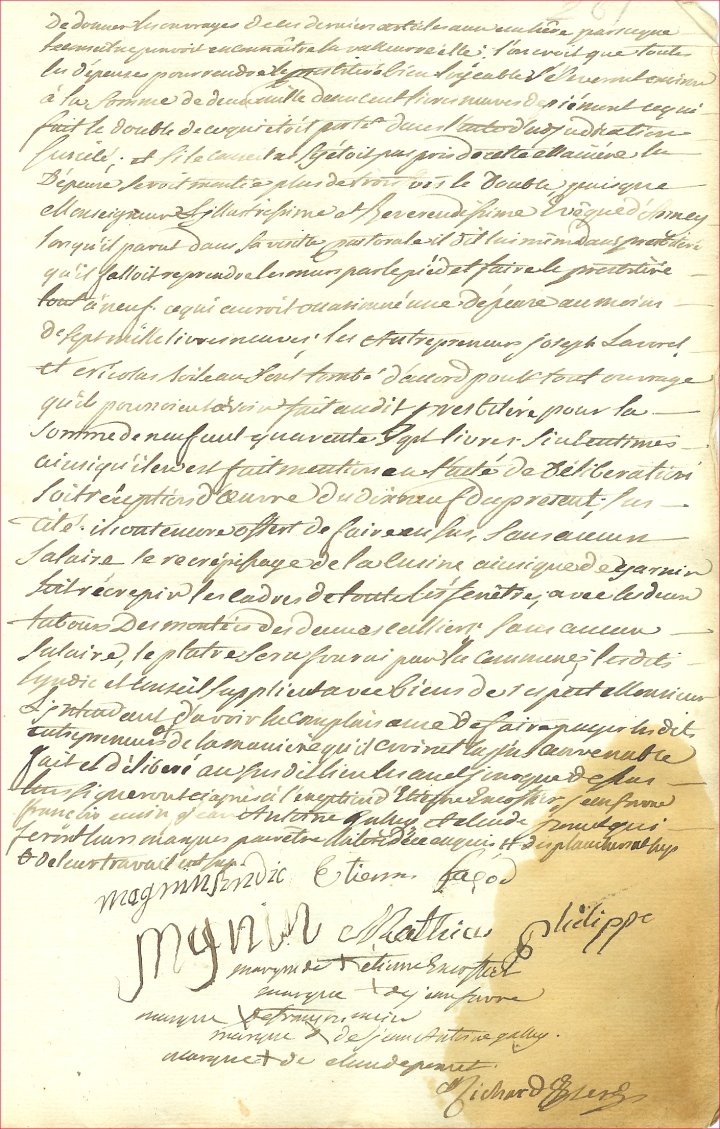 De donner les ouvrages de ces derniers articles aux enchère parseque
l'on ne pouvoit en connaître la valleur réelle ; l'on croit que toutes
les dépenses pour rendre le presbitère bien logeable s'éléveront environ
à la somme de deux mille deux cent livres neuves de piémont ce qui
fait le double de ce qui étoit porté dans l'acte d'adjudication
susdité. et si le conseil ne s'étoit pas pris de cette manière la
Dépense seroit montée à plus de trois fois le double, puisque
Monseigneur L'illustrissime et Reverendissime Evêque d'Annecy
lorsqu'il parut dans sa visite pastorale il dit lui même dans presbitère
qu'il falloit reprendre les murs par le pied et faire le presbitère
tout à neuf. ce qui auroit occasionné une dépense au moins
de sept mille livres neuves ; les Entrepreneurs Joseph Lavorel
et Nicolas sont tombé d'accord pour tout ouvrage
qu'ils pourroient avoir fait au dit presbitère pour la
somme de neuf cent quarente sept livres centimes
ainsi qu'il en est fait mention en l'acte de Déliberation
soit réception d'œuvre du dix neuf du present sus
cité. il ont encore offert de faire en sus, sans aucun
salaire le recrépissage de la cuisine ainsi que de garnir
soit récrepir les cadres de toutes les fenêtre, avec les deux
Des montés des deux escalliers sans aucun
salaire, le platre sera fourni par la commune ; les dits
syndic et Conseil supplient avec bien de respect Monsieur
L'intendant d'avoir la complaisance de faire payer les dits
entrepreneurs de la manière qu'il croira la plus convenable
fait et déliberé au sus dit lieu les an et jour que dessus
les signeront ci après à l'exception d'Etienne jean favre
françois jean Antoine et claude qui
feront leurs marques pour être et des planchers
de leur travail
magnin sindic Etienne
Mathieu philippe
marque de + étienne
marque + de jean favre
marque + de françois
marque + de jean Antoine
marque + de claude
Richard